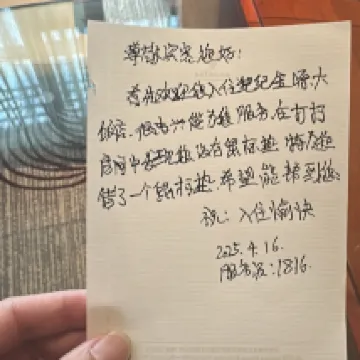 尊敬宾客您好!
首先欢迎您入住世纪金源大
饭店. 很高兴能为您服务. 在打扫
房间中发现您没有鼠标垫 特为您
借了一个鼠标垫. 希望能帮到您.
祝: 入住愉快
2025.4.16.
服务员: 1816.